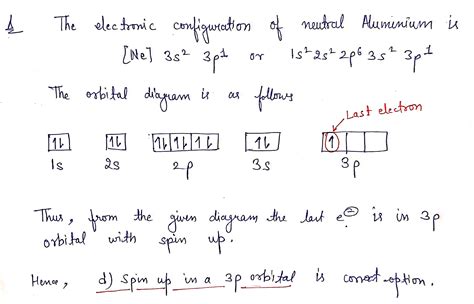 The electronic configuration of neutral Aluminium is
[Ne] 3s² 3p¹ or 1s² 2s² 2p⁶ 3s² 3p¹
The orbital diagram is as follows
Last electron
1s 2s 2p 3s 3p
Thus, from the given diagram the last e⊖ is in 3p
orbital with spin up.
Hence, d) Spin up in a 3p orbital is correct option.